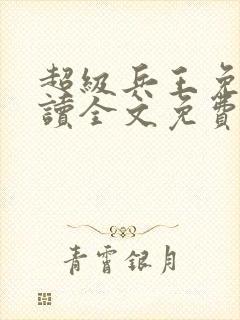 超級兵王免
讀全文免費
青霄銀月